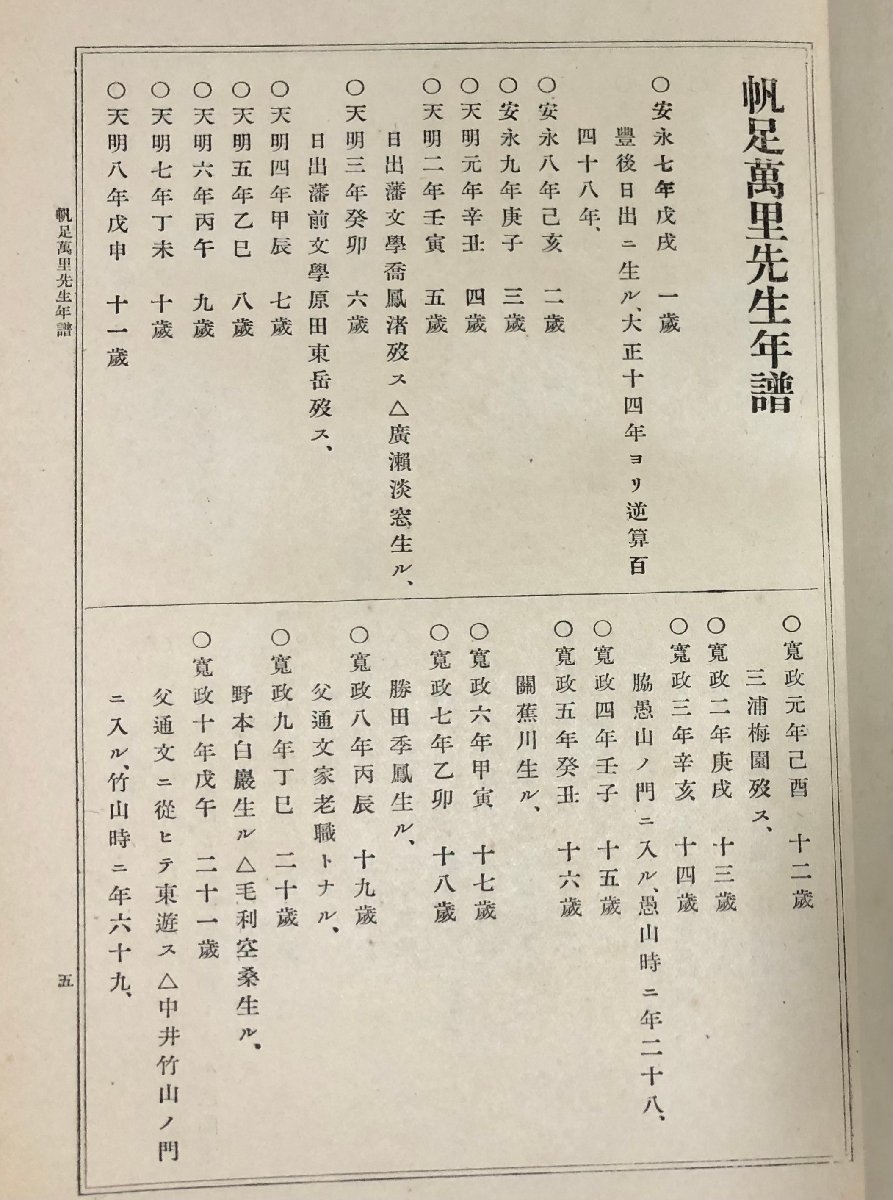 帆足萬里先生年譜
○安永七年戊戌　一歲
豐後日出ニ生ル、大正十四年ヨリ逆算百
四十八年、
○安永八年己亥　二歲
○安永九年庚子　三歲
○天明元年辛丑　四歲
○天明二年壬寅　五歲
日出藩文學喬鳳渚歿ス△廣瀨淡窓生ル、
○天明三年癸卯　六歲
日出藩前文學原田東岳歿ス、
○天明四年甲辰　七歲
○天明五年乙巳　八歲
○天明六年丙午　九歲
○天明七年丁未　十歲
○天明八年戊申　十一歲
○寬政元年己酉　十二歲
三浦梅園歿ス、
○寬政二年庚戌　十三歲
○寬政三年辛亥　十四歲
脇愚山ノ門ニ入ル、愚山時ニ年二十八、
○寬政四年壬子　十五歲
○寬政五年癸丑　十六歲
關蕉川生ル、
○寬政六年甲寅　十七歲
○寬政七年乙卯　十八歲
勝田季鳳生ル、
○寬政八年丙辰　十九歲
父通文家老職トナル、
○寬政九年丁巳　二十歲
野本白巖生ル△毛利空桑生ル、
○寬政十年戊午　二十一歲
父通文ニ從ヒテ東遊ス△中井竹山ノ門
ニ入ル、竹山時ニ年六十九、
帆足萬里先生年譜
五